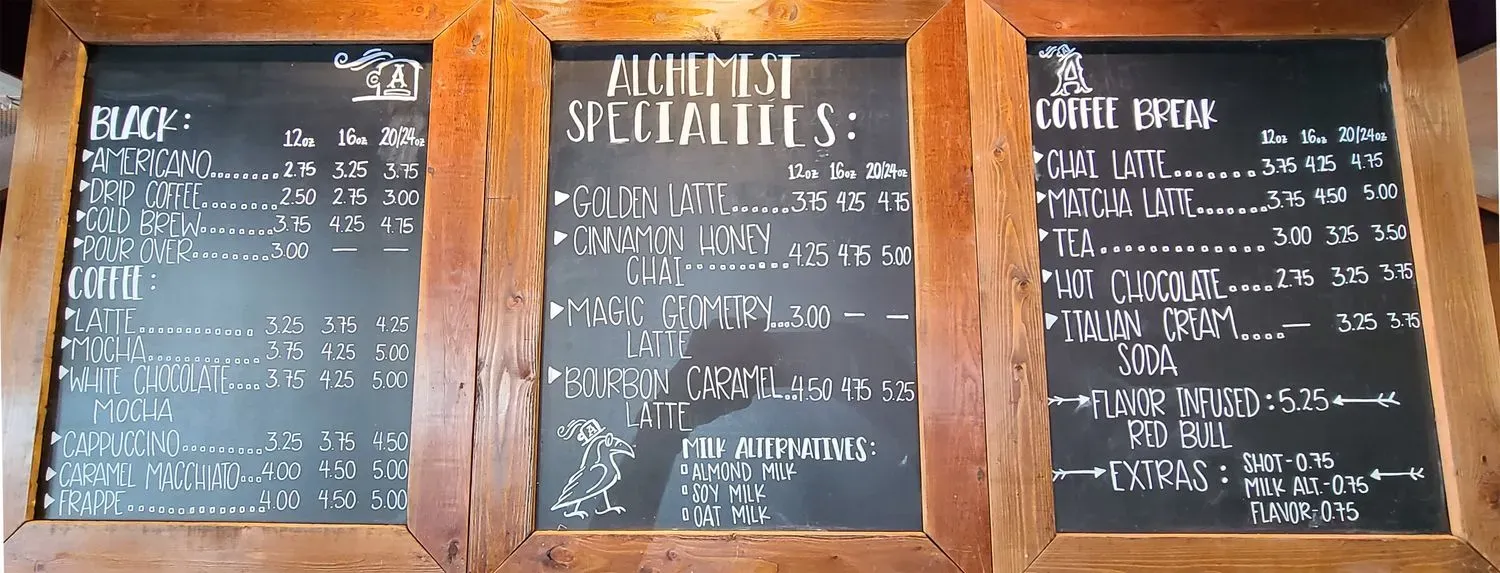 A
BLACK:
12oz 16oz 20/24oz
AMERICANO........2.75 3.25 3.75
DRIP COFFEE........2.50 2.75 3.00
COLD BREW.........3.75 4.25 4.75
POUR OVER.........3.00 — —
COFFEE:
LATTE............. 3.25 3.75 4.25
MOCHA............. 3.75 4.25 5.00
WHITE CHOCOLATE.... 3.75 4.25 5.00
MOCHA
CAPPUCCINO.......... 3.25 3.75 4.50
CARAMEL MACCHIATO...4.00 4.50 5.00
FRAPPE ...............4.00 4.50 5.00
ALCHEMIST
SPECIALTIES:
12oz 16oz 20/24oz
GOLDEN LATTE......3.75 4.25 4.75
CINNAMON HONEY
CHAI..........4.25 4.75 5.00
MAGIC GEOMETRY...3.00 — —
LATTE
BOURBON CARAMEL...4.50 4.75 5.25
LATTE
A
MILK ALTERNATIVES:
ALMOND MILK
SOY MILK
OAT MILK
A
COFFEE BREAK
12oz 16oz 20/24oz
CHAI LATTE........3.75 4.25 4.75
MATCHA LATTE.......3.75 4.50 5.00
TEA............... 3.00 3.25 3.50
HOT CHOCOLATE....2.75 3.25 3.75
ITALIAN CREAM....— 3.25 3.75
SODA
FLAVOR INFUSED: 5.25
RED BULL
EXTRAS: SHOT-0.75
MILK ALT.-0.75
FLAVOR-0.75